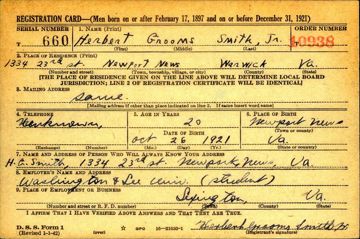 REGISTRATION CARD—(Men born on or after February 17, 1897 and on or before December 31, 1921)
SERIAL NUMBER 1. NAME (Print) ORDER NUMBER
T 660 Herbert Grooms Smith, Jr. 10938
(First) (Middle) (Last)
2. PLACE OF RESIDENCE (Print)
1334 23rd St. Newport News Warwick Va.
(Number and street) (Town, township, village, or city) (County) (State)
[THE PLACE OF RESIDENCE GIVEN ON THE LINE ABOVE WILL DETERMINE LOCAL BOARD
JURISDICTION; LINE 2 OF REGISTRATION CERTIFICATE WILL BE IDENTICAL]
3. MAILING ADDRESS
Same
[Mailing address if other than place indicated on line 2. If same insert word same]
4. TELEPHONE 5. AGE IN YEARS 6. PLACE OF BIRTH
Unknown 20 Newport News
DATE OF BIRTH (Town or county)
Oct 26 1921 Va.
(Exchange) (Number) (Mo.) (Day) (Yr.) (State or country)
7. NAME AND ADDRESS OF PERSON WHO WILL ALWAYS KNOW YOUR ADDRESS
H.G. Smith, 1334 23rd St. Newport News, Va.
8. EMPLOYER'S NAME AND ADDRESS
Washington & Lee Univ. (Student)
9. PLACE OF EMPLOYMENT OR BUSINESS
Lexington Va.
(Number and street or R. F. D. number) (Town) (County) (State)
I AFFIRM THAT I HAVE VERIFIED ABOVE ANSWERS AND THAT THEY ARE TRUE.
D. S. S. Form 1
(Revised 1-1-42) (over) Herbert Grooms Smith, Jr.
(Registrant's signature)